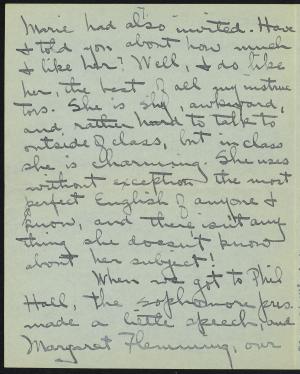 7.
Marie had also invited. Have
I told you about how much
I like her? Well, I do like
her, the best of all my instruc
tors. She is shy, awkward,
and rather hard to talk to
outside of class, but in class
she is charming. She uses
without exception the most
perfect English of anyone I
know, and there isn't any
thing she doesn't know
about her subject!
When we got to Phil
Hall, the sophomore pres.
made a little speech, and
Margaret Flemming, our